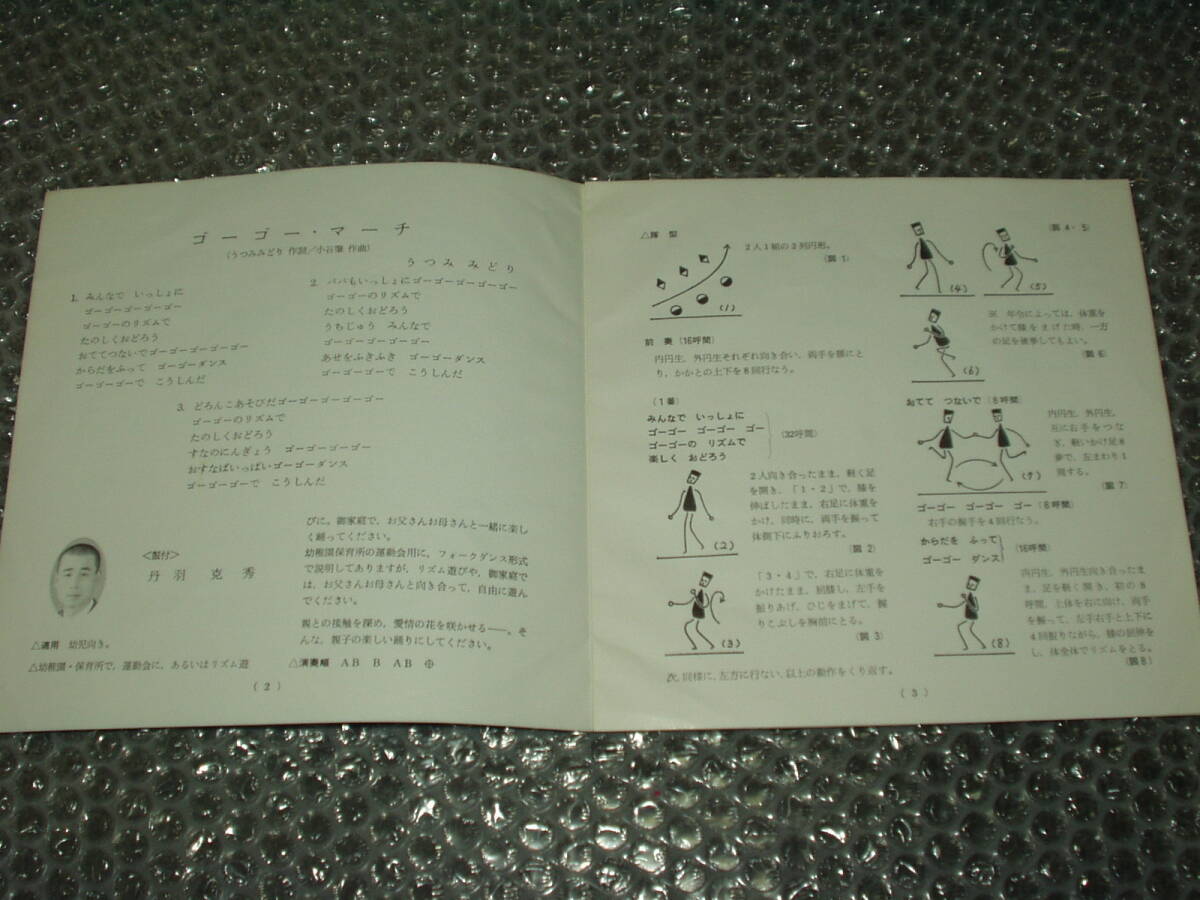 ゴーゴー・マーチ
(うつみみどり 作詞／小谷肇 作曲)
うつみ みどり
1. みんなで いっしょに
ゴーゴーゴーゴーゴー
ゴーゴーのリズムで
たのしくおどろう
おててつないでゴーゴーゴーゴーゴー
からだをふって ゴーゴーダンス
ゴーゴーゴーで こうしんだ
2. パパもいっしょにゴーゴーゴーゴーゴー
ゴーゴーのリズムで
たのしくおどろう
うちじゅう みんなで
ゴーゴーゴーゴーゴー
あせをふきふき ゴーゴーダンス
ゴーゴーゴーで こうしんだ
3. どろんこあそびだゴーゴーゴーゴーゴー
ゴーゴーのリズムで
たのしくおどろう
すなのにんぎょう ゴーゴーゴーゴー
おすなばいっぱいゴーゴーダンス
ゴーゴーゴーで こうしんだ
<振付>
丹羽克秀
△適用 幼児向き。
△幼稚園・保育所で、運動会に、あるいはリズム遊
びに。御家庭で、お父さんお母さんと一緒に楽し
く踊ってください。
幼稚園保育所の運動会用に、フォークダンス形式
で説明してありますが、リズム遊びや、御家庭で
は、お父さんお母さんと向き合って、自由に遊ん
でください。
親との接触を深め、愛情の花を咲かせる――。そ
んな、親子の楽しい踊りにしてください。
△演奏順 AB B AB
(2)
△隊型
2人1組の2列円形。
(図1)
(1)
前奏 (16呼間)
内円生、外円生それぞれ向き合い、両手を腰にと
り、かかとの上下を8回行なう。
(1番)
みんなで いっしょに
ゴーゴー ゴーゴー ゴー
ゴーゴーの リズムで
楽しく おどろう
(32呼間)
2人向き合ったまま、軽く足
を開き、「1・2」で、膝を
伸ばしたまま、右足に体重を
かけ、同時に、両手を振って
体側下にふりおろす。
(図2)
(2)
「3・4」で、右足に体重を
かけたまま、屈膝し、左手を
振りあげ、ひじをまげて、握
りこぶしを胸前にとる。
(図3)
(3)
次、同様に、左方に行ない、以上の動作をくり返す。
(図4・5)
(4)
(5)
※ 年令によっては、体重を
かけて膝をまげた時、一方
の足を後挙してもよい。
(図6)
(6)
おてて つないで (8呼間)
内円生、外円生、
互に右手をつな
ぎ、軽いかけ足8
歩で、左まわり1
周する。
(図7)
(7)
ゴーゴー ゴーゴー ゴー (8呼間)
右手の握手を4回行なう。
からだを ふって
ゴーゴー ダンス
(16呼間)
内円生、外円生向き合ったま
ま、足を軽く開き、初の8
呼間、上体を右に向け、両手
を振って、左手右手と上下に
4回振りながら、膝の屈伸を
し、体全体でリズムをとる。
(図8)
(8)
(3)